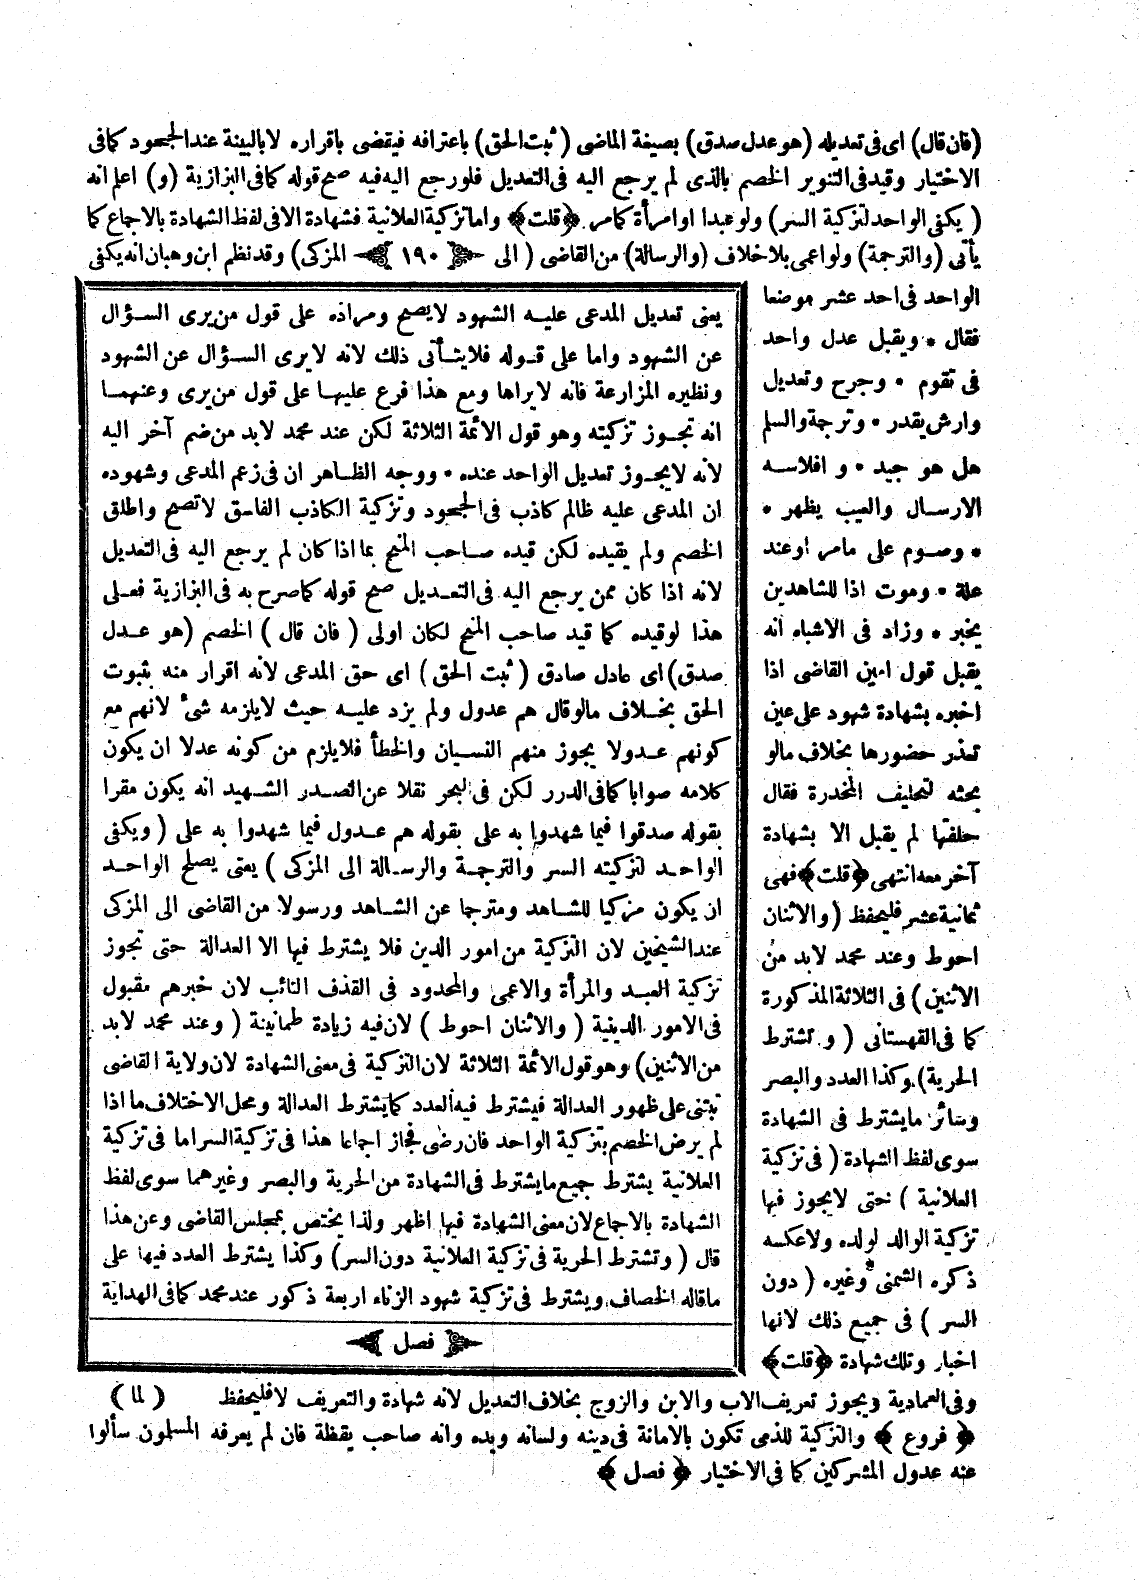 (فان قال) اى فى تعديله (هو عدل صدق) بصيغة الماضى (ثبت الحق) باعترافه فيقضى باقراره لا بالبينة عند الجحود كما فى
الاختيار وقيد فى التنوير الخصم بالذى لم يرجع اليه فى التعديل فلو رجع اليه فيه صح قوله كما فى البزازية (و) اعلم انه
(يكفى الواحد لتزكية السر) ولو عبدا او امرأة كما مر ﴿قلت﴾ واما تزكية العلانية فشهادة الا فى لفظ الشهادة بالاجماع كما
يأتى (والترجمة) ولو اعمى بلا خلاف (والرسالة) من القاضى (الى ١٩٠ المزكى) وقد نظم ابن وهبان انه يكفى
الواحد فى احد عشر موضعا
فقال * ويقبل عدل واحد
فى تقوم * وجرح وتعديل
وارش يقدر * وترجمة والسلم
هل هو جيد * و افلاسه
الارسال والعيب يظهر *
* وصوم على مامر اوعند
علة * وموت اذا للشاهدين
يخبر * وزاد فى الاشباه انه
يقبل قول امين القاضى اذا
اخبره بشهادة شهود على عين
تعذر حضورها بخلاف مالو
بعثه لتحليف المخدرة فقال
حلفتها لم يقبل الا بشهادة
آخر معه انتهى ﴿قلت﴾ فهى
ثمانية عشر فليحفظ (والاثنان
احوط وعند محمد لابد من
الاثنين) فى الثلاثة المذكورة
كما فى القهستانى (و تشترط
الحرية) وكذا العدد والبصر
وسائر ما يشترط فى الشهادة
سوى لفظ الشهادة (فى تزكية
العلانية) حتى لايجوز فيها
تزكية الوالد لولده ولاعكسه
ذكره الشمنى وغيره (دون
السر) فى جميع ذلك لانها
اخبار وتلك شهادة ﴿قلت﴾
وفى العمادية ويجوز تعريف الاب والابن والزوج بخلاف التعديل لانه شهادة والتعريف لا فليحفظ
﴿فروع﴾ والتزكية للذمى تكون بالامانة فى دينه ولسانه ويده وانه صاحب يقظة فان لم يعرفه المسلمون سألوا
عنه عدول المشركين كما فى الاختيار ﴿فصل﴾
يعنى تعديل المدعى عليه الشهود لايصح ومراده على قول من يرى السؤال
عن الشهود واما على قوله فلايتأتى ذلك لانه لايرى السؤال عن الشهود
ونظيره المزارعة فانه لايراها ومع هذا فرع عليها على قول من يرى وعنهما
انه تجوز تزكيته وهو قول الائمة الثلاثة لكن عند محمد لابد من ضم آخر اليه
لانه لايجوز تعديل الواحد عنده * ووجه الظاهر ان فى زعم المدعى وشهوده
ان المدعى عليه ظالم كاذب فى الجحود وتزكية الكاذب الفاسق لاتصح واطلق
الخصم ولم يقيده لكن قيده صاحب المنح بما اذا كان لم يرجع اليه فى التعديل
لانه اذا كان ممن يرجع اليه فى التعديل صح قوله كما صرح به فى البزازية فعلى
هذا لو قيده كما قيد صاحب المنح لكان اولى (فان قال) الخصم (هو عدل
صدق) اى عادل صادق (ثبت الحق) اى حق المدعى لانه اقرار منه بثبوت
الحق بخلاف مالو قال هم عدول ولم يزد عليه حيث لايلزمه شئ لانهم مع
كونهم عدولا يجوز منهم النسيان والخطأ فلايلزم من كونه عدلا ان يكون
كلامه صوابا كما فى الدرر لكن فى البحر نقلا عن الصدر الشهيد انه يكون مقرا
بقوله صدقوا فيما شهدوا به على بقوله هم عدول فيما شهدوا به على (ويكفى
الواحد لتزكيته السر والترجمة والرسالة الى المزكى) يعنى يصلح الواحد
ان يكون مزكيا للشاهد ومترجما عن الشاهد ورسولا من القاضى الى المزكى
عند الشيخين لان التزكية من امور الدين فلا يشترط فيها الا العدالة حتى تجوز
تزكية العبد والمرأة والاعمى والمحدود فى القذف التائب لان خبرهم مقبول
فى الامور الدينية (والاثنان احوط) لان فيه زيادة طمانينة (وعند محمد لابد
من الاثنين) وهو قول الائمة الثلاثة لان التزكية فى معنى الشهادة لان ولاية القاضى
تبتنى على ظهور العدالة فيشترط فيه العدد كما يشترط العدالة ومحل الاختلاف ما اذا
لم يرض الخصم بتزكية الواحد فان رضى فجاز اجماعا هذا فى تزكية السر اما فى تزكية
العلانية يشترط جميع ما يشترط فى الشهادة من الحرية والبصر وغيرهما سوى لفظ
الشهادة بالاجماع لان معنى الشهادة فيها اظهر ولذا يختص بمجلس القاضى وعن هذا
قال (وتشترط الحرية فى تزكية العلانية دون السر) وكذا يشترط العدد فيها على
ماقاله الخصاف ويشترط فى تزكية شهود الزناء اربعة ذكور عند محمد كما فى الهداية
فصل
(لما)